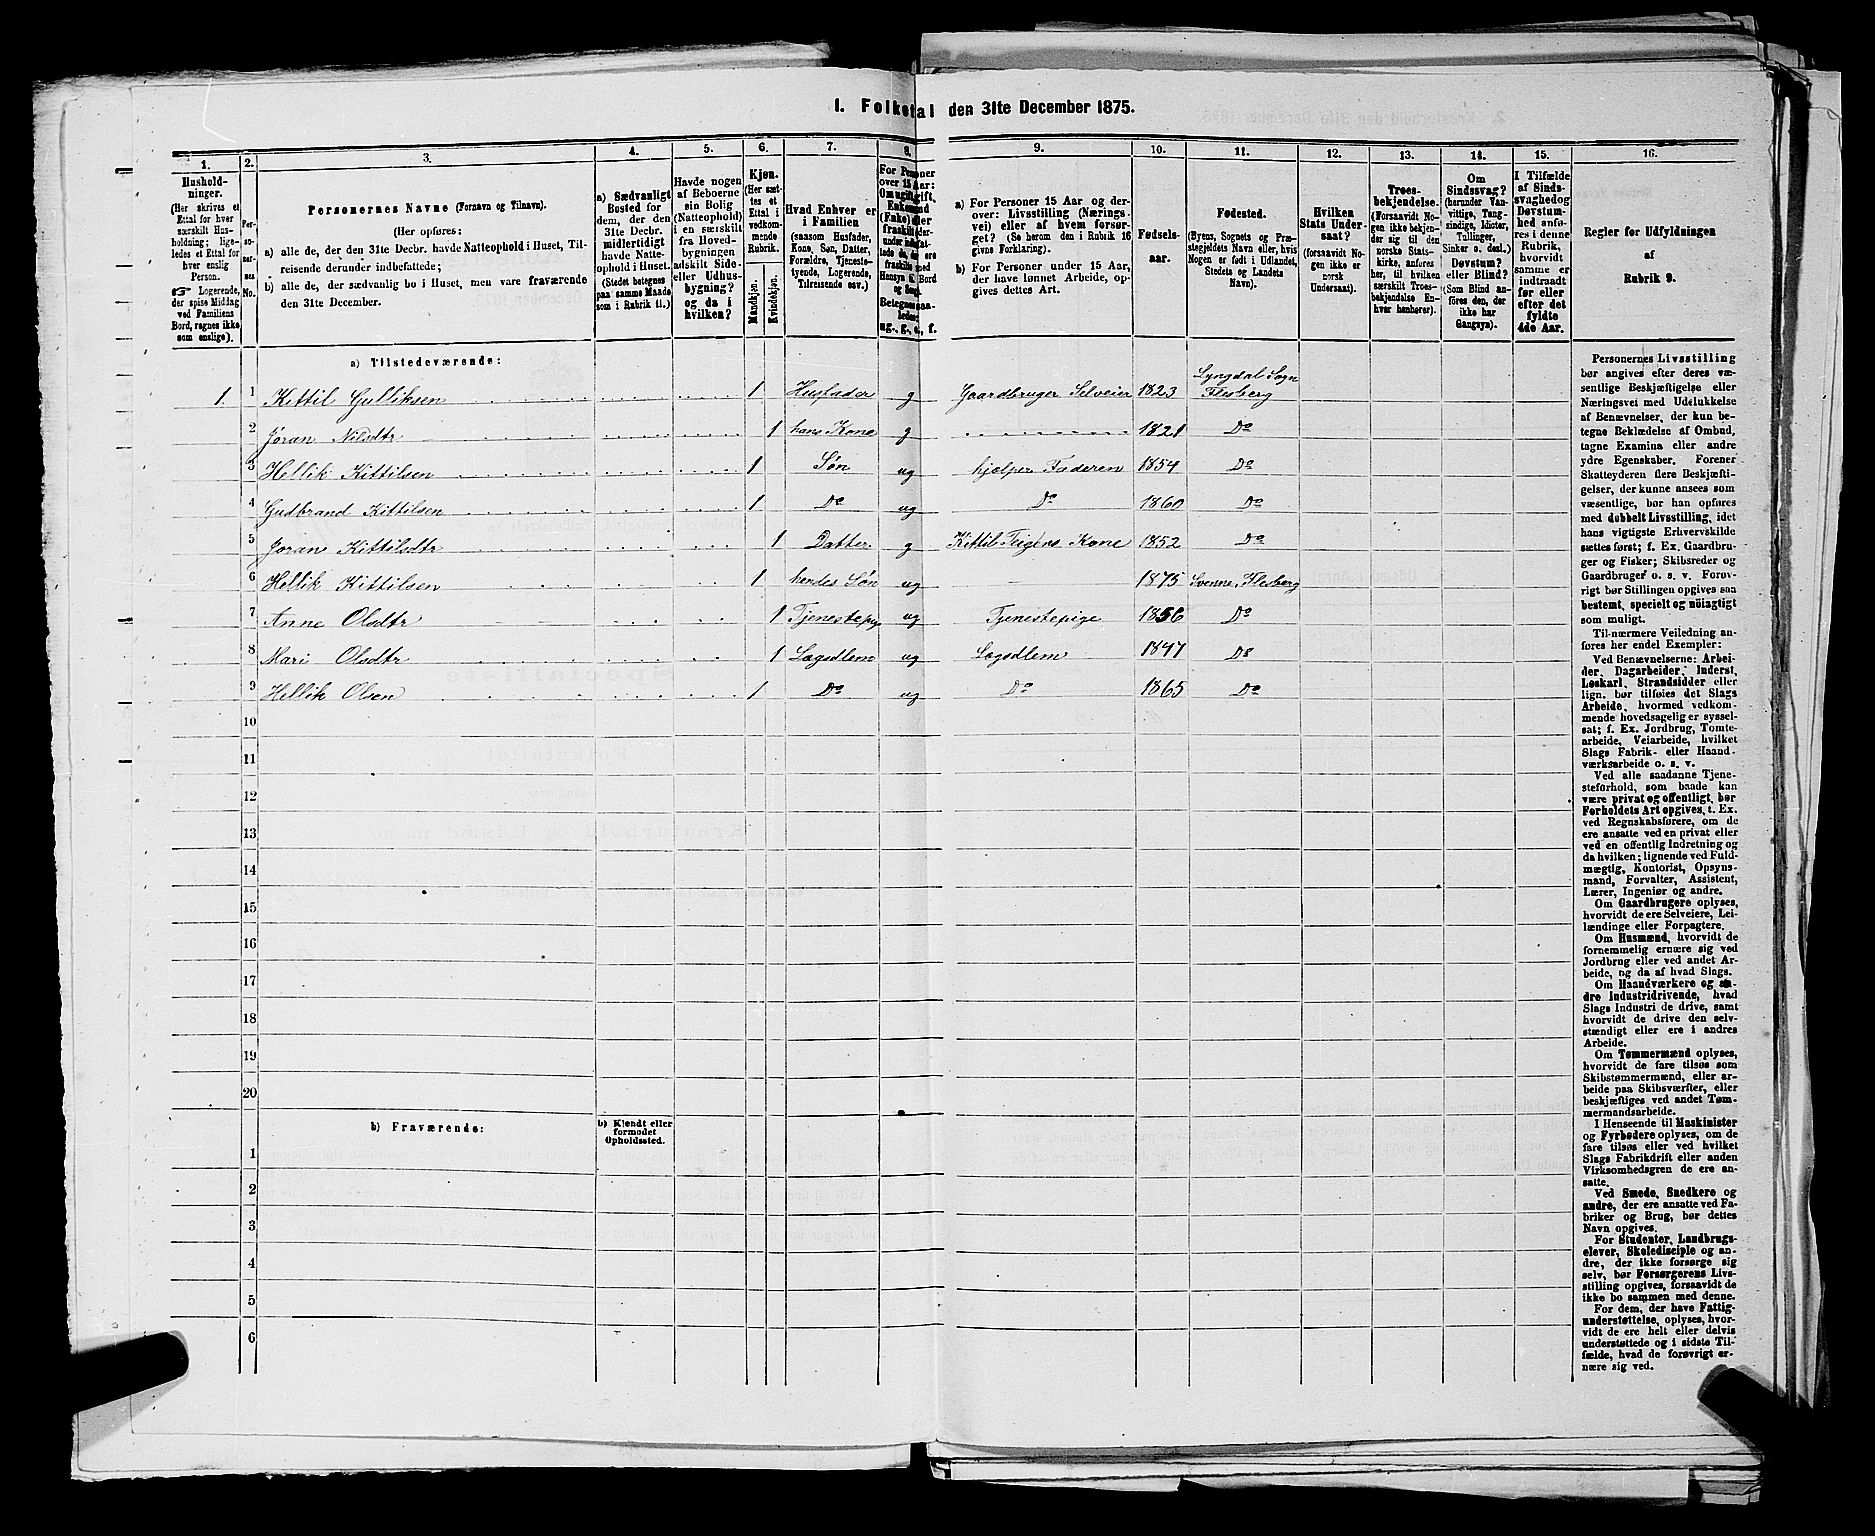 1. Folketal den 31te December 1875.
1. 2. 3. 4. 5. 6. 7. 8. 9. 10. 11. 12. 13. 14. 15. 16.
Hushold-
ninger.
(Her skrives et
Ettal for hver
særskilt Hus-
holdning; lige-
ledes et Ettal for
hver enslig
Person.
☞ Logerende,
der spise Middag
ved Familiens
Bord, regnes ikke
som enslige).
Per-
so-
ner-
nes
No.
Personernes Navne (Fornavn og Tilnavn).
(Her opføres:
a) alle de, der den 31te Decbr. havde Natteophold i Huset, Til-
reisende derunder indbefattede;
b) alle de, der sædvanlig bo i Huset, men vare fraværende
den 31te December.
a) Sædvanligt
Bosted for
dem, der den
31te Decbr.
midlertidigt
havde Natte-
ophold i Huset.
(Stedet betegnes
paa samme Maade
som i Rubrik 11.)
Havde nogen
af Beboerne
sin Bolig
(Natteophold)
i en særskilt
fra Hoved-
bygningen
adskilt Side-
eller Udhus-
bygning?
og da i
hvilken?
Kjøn.
(Her sæt-
tes et
Ettal i
vedkom-
mende
Rubrik.
Mandkjøn.
Kvindekjøn.
Hvad Enhver er
i Familien
(saasom Husfader,
Kone, Søn, Datter,
Forældre, Tjeneste-
tyende, Logerende,
Tilreisende osv.)
For Personer
over 15 Aar:
Om ugift, gift,
ug., g., e., f.
a) For Personer 15 Aar og der-
over: Livsstilling (Nærings-
vei) eller af hvem forsør-
get? (Se herom den i Rubrik 16
givne Forklaring).
b) For Personer under 15 Aar,
der have lønnet Arbeide, op-
gives dettes Art.
Fødsels-
aar.
Fødested.
(Byens, Sognets og Præ-
stegjeldets Navn eller, hvis
Nogen er født i Udlandet,
Stedets og Landets
Navn).
Hvilken
Stats Under-
saat?
(forsaavidt No-
gen ikke er
norsk
Undersaat).
Troes-
bekjendelse.
(Forsaavidt No-
gen ikke bekjen-
der sig til den
norske Stats-
kirke, anføres
her, til hvilken
særskilt Troes-
bekjendelse En-
hver henhører).
Om
Sindssvag?
(herunder Van-
vittige, Tung-
sindige, Idioter,
Tullinger,
Sinker o. desl.).
Døvstum?
eller Blind?
(Som Blind an-
føres den, der
ikke har
Gangsyn).
I Tilfælde
af Sinds-
svaghed og
Døvstum-
hed anfø-
res i denne
Rubrik,
hvorvidt
samme er
indtraadt
før eller
efter det
fyldte
4de Aar.
Regler for Udfyldningen
af
Rubrik 9.
a) Tilstedeværende:
1. 1 Kittil Gulliksen 1 Husfader g Gaardbruger Selveier 1823 Lyngdal Sogn Flesberg
2 Jøran Nilsdtr 1 hans Kone g 1821 Do
3 Hellik Kittilsen 1 Søn ug hjælper Faderen 1854 Do
4 Gudbrand Kittilsen 1 Do ug Do 1860 Do
5 Jøran Kittilsdtr 1 Datter g Kittil Teigens Kone 1852 Do
6 Hellik Kittilsen 1 hendes Søn ug 1875 Svenne, Flesberg
7 Anne Olsdtr 1 Tjenestepig ug Tjenestepige 1856 Do
8 Mari Olsdtr 1 Lægdlem ug Lægdlem 1847 Do
9 Hellik Olsen 1 Do ug Do 1865 Do
10
11
12
13
14
15
16
17
18
19
20
b) Fraværende:
b) Kjendt eller
formodet
Opholdssted.
1
2
3
4
5
6
Personernes Livsstilling
bør angives efter deres væ-
sentlige Beskjæftigelse eller
Næringsvei med Udelukkelse
af Benævnelser, der kun be-
tegne Beklædelse af Ombud,
tagne Examina eller andre
ydre Egenskaber. Forener
Skatteyderen flere Beskjæfti-
gelser, der kunne ansees som
væsentlige, bør han opføres
med dobbelt Livsstilling, idet
hans vigtigste Erhvervskilde
sættes først; f. Ex. Gaardbru-
ger og Fisker; Skibsreder og
Gaardbruger o. s. v. Forøv-
rigt bør Stillingen opgives saa
bestemt, specielt og nöiagtigt
som muligt.
Til nærmere Veiledning an-
føres her endel Exempler:
Ved Benævnelserne: Arbei-
der, Dagarbeider, Inderst,
Løskarl, Strandsidder eller
lign. bør tilføies det Slags
Arbeide, hvormed vedkom-
mende hovedsagelig er syssel-
sat; f. Ex. Jordbrug, Tomte-
arbeide, Veiarbeide, hvilket
Slags Fabrik- eller Haand-
værksarbeide o. s. v.
Ved alle saadanne Tjene-
steforhold, som baade kan
være privat og offentligt, bør
Forholdets Art opgives, t. Ex.
ved Regnskabsførere, om de
ere ansatte ved en privat eller
ved en offentlig Indretning og
da hvilken; lignende ved Fuld-
mægtig, Kontorist, Opsyns-
mand, Forvalter, Assistent,
Lærer, Ingeniør og andre.
Om Gaardbrugere oplyses,
hvorvidt de ere Selveiere, Lei-
lændinge eller Forpagtere.
Om Husmænd, hvorvidt de
fornemmelig ernære sig ved
Jordbrug eller ved andet Ar-
beide, og da af hvad Slags.
Om Haandværkere og an-
dre Industridrivende, hvad
Slags Industri de drive, samt
hvorvidt de drive den selv-
stændigt eller ere i andres
Arbeide.
Om Tømmermænd oplyses,
hvorvidt de fare tilsøs som
Skibstømmermænd, eller ar-
beide paa Skibsværfter, eller
beskjæftiges ved andet Tøm-
mermandsarbeide.
I Henseende til Maskinister
og Fyrbødere oplyses, om de
fare tilsøs eller ved hvilket
Slags Fabrikdrift eller anden
Virksomhedsgren de ere an-
satte.
Ved Smede, Snedkere og
andre, der ere ansatte ved Fa-
briker og Brug, bør dettes
Navn opgives.
For Studenter, Landbrugs-
elever, Skoledisciple og an-
dre, der ikke forsørge sig
selv, bør Forsørgerens Livs-
stilling opgives, forsaavidt de
ikke bo sammen med denne.
For dem, der have Fattig-
understøttelse, oplyses, hvor-
vidt de ere helt eller delvis
understøttede og i sidste Til-
fælde, hvad de forøvrigt er-
nære sig ved.